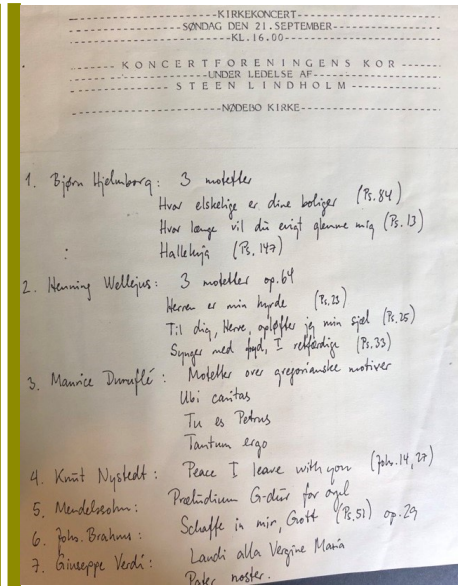 KIRKEKONCERT
SØNDAG DEN 21.SEPTEMBER
KL.16.00
KONCERTFORENINGENS KOR
UNDER LEDELSE AF
STEEN LINDHOLM
NØDEBO KIRKE
1. Bjørn Hjelmborg: 3 motetter
Hvor elskelige er dine boliger (Ps.84)
Hvor længe vil du evigt glemme mig (Ps.13)
Halleluja (Ps.147)
2. Henning Wellejus: 3 motetter op.64
Herren er min hyrde (Ps.23)
Til dig, Herre, opløfter jeg min sjæl (Ps.25)
Synger med fryd, I retfærdige (Ps.33)
3. Maurice Duruflé: Motetter over gregorianske motiver
Ubi caritas
Tu es Petrus
Tantum ergo
4. Knut Nystedt: Peace I leave with you (Joh.14,27)
5. Mendelssohn: Præludium G-dur for orgel
6. Joh. Brahms: Schaffe in mir, Gott (Ps.51) op.29
7. Giuseppe Verdi: Laudi alla Vergine Maria
Pater noster.